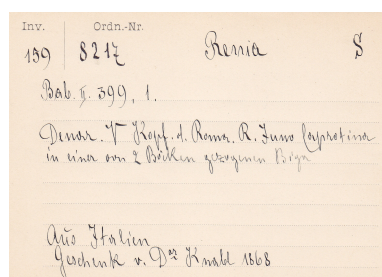 Inv. Ordn.-Nr.
159 8217 Renia S
Bab. II. 399, 1.
Denar. V Kopf. d. Roma. R. Juno Caprotina
in einer von 2 Böcken gezogenen Biga
Aus Italien
Geschenk v. Dr 1868